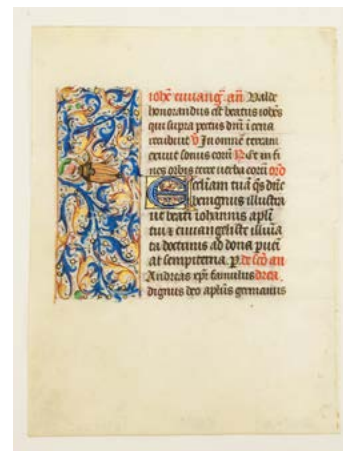 iohē euuang̃. añ. Valde
honorandus est beatus iohēs
qui supra pectus dnī ī cena
recubuit V In omnē terram
exiuit sonus eorū R Et in fi
nes orbis terre uerba eorū oro
Ecl̄iam tuā q̄s dn̄e
benignus illustra
ut beati iohannis apl̄i
tui ⁊ euuangeliste illumīa
ta doctrinis ad dona pueī
at sempiterna. P. de sc̄o an
Andreas xp̄i famulus drea.
dignus deo apl̄us germanus